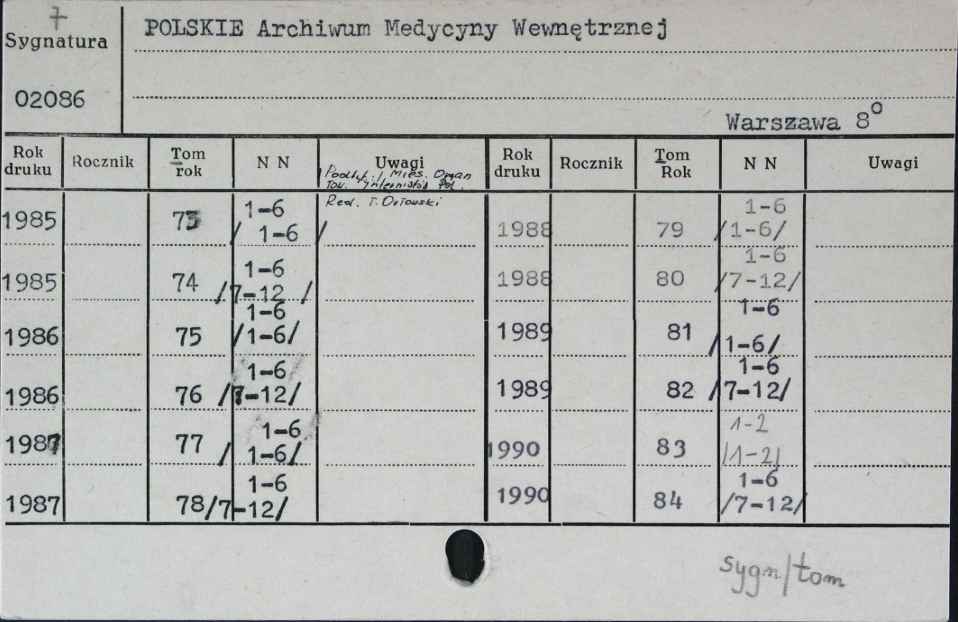 7
Sygnatura
02086
POLSKIE Archiwum Medycyny Wewnętrznej
Warszawa 8°
Rok druku Rocznik Tom rok N N Uwagi Rok druku Rocznik Tom Rok N N Uwagi
Podtyt. / Mies. Organ
Tow. Internistów Pol.
Red. T. Orłowski
1985 73 1-6 / 1-6 / 1988 79 1-6 /1-6/
1985 74 1-6 /7-12 / 1988 80 1-6 /7-12/
1986 75 1-6 /1-6/ 1989 81 1-6 /1-6/
1986 76 1-6 /7-12/ 1989 82 1-6 /7-12/
1987 77 1-6 / 1-6/ 1990 83 1-2 /1-2/
1987 78 1-6 /7-12/ 1990 84 1-6 /7-12/
sygn/tom